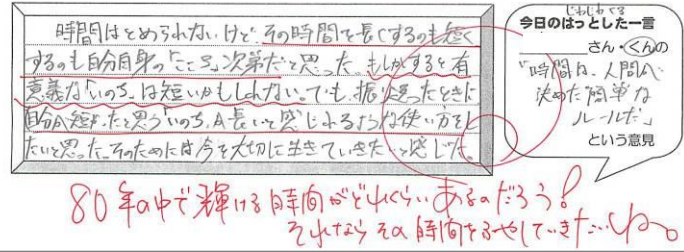 時間はとめられないけど、その時間を長くするのも短く
するのも自分自身の「こころ」次第だと思った。もしかすると有
意義な「いのち」は短いかもしれない。でも、振り返ったときに
自分が短かったと思う「いのち」が長いと感じれるような使い方をし
たいと思った。そのためには今を大切に生きていきたいと感じた。
じわじわくる
今日のはっとした一言
さん・くんの
「時間は、人間が
決めた簡単な
ルールだ」
という意見
80年の中で輝ける時間がどれくらいあるのだろう!
それならその時間をふやしていきたいね。